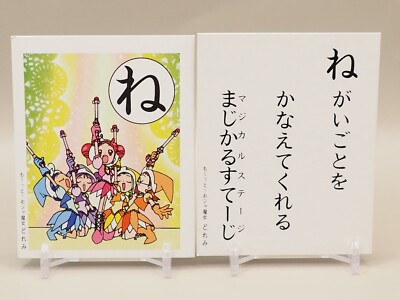 ね
も〜っと!おジャ魔女どれみ
ねがいごとを
かなえてくれる
まじかるすてーじ
マジカルステージ
も〜っと!おジャ魔女どれみ